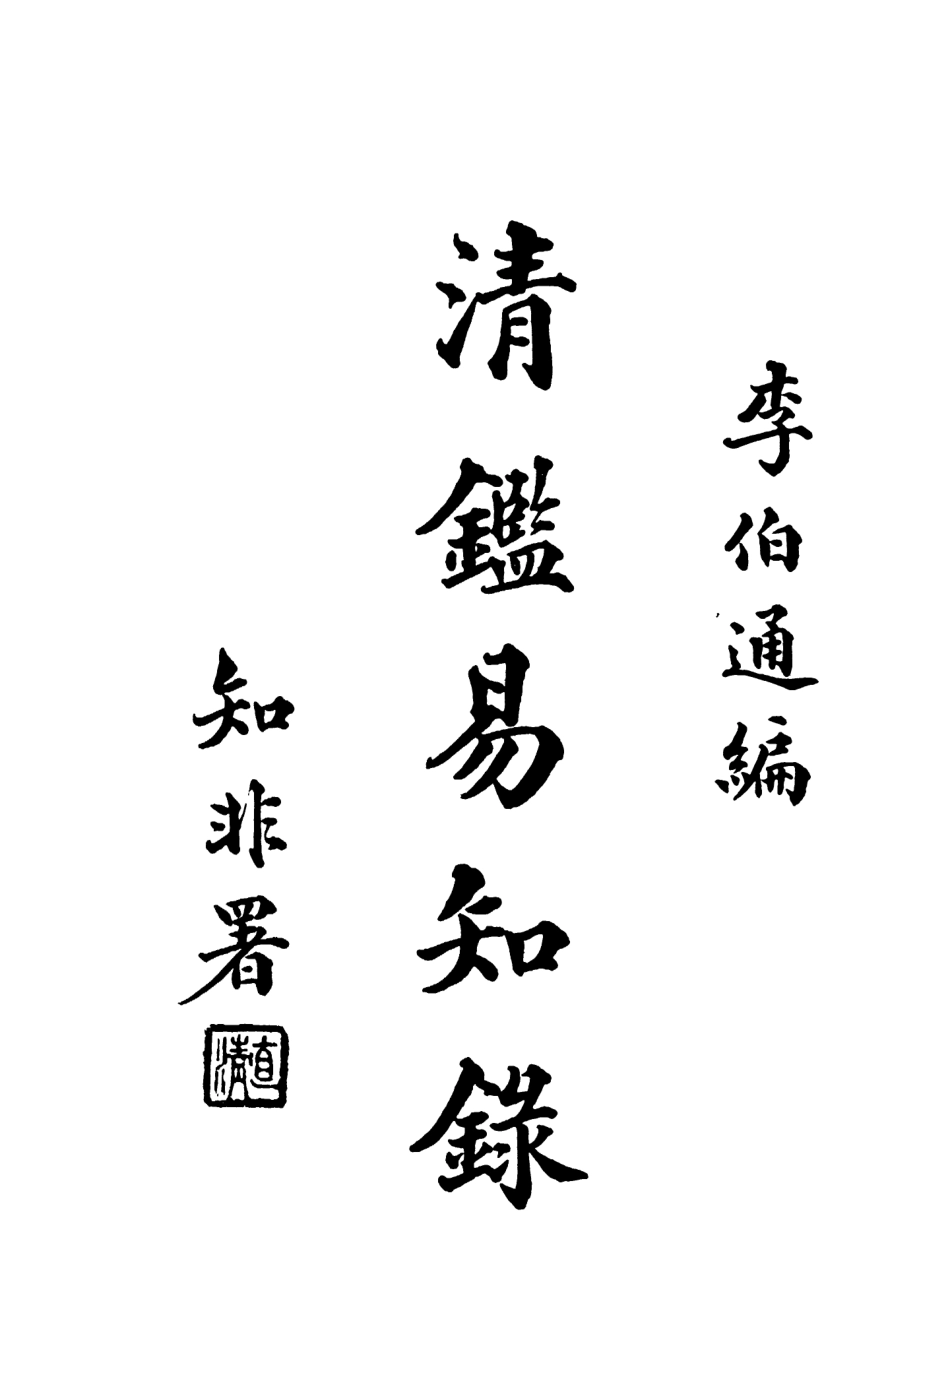 李伯通編
清鑑易知錄
知非署
直清